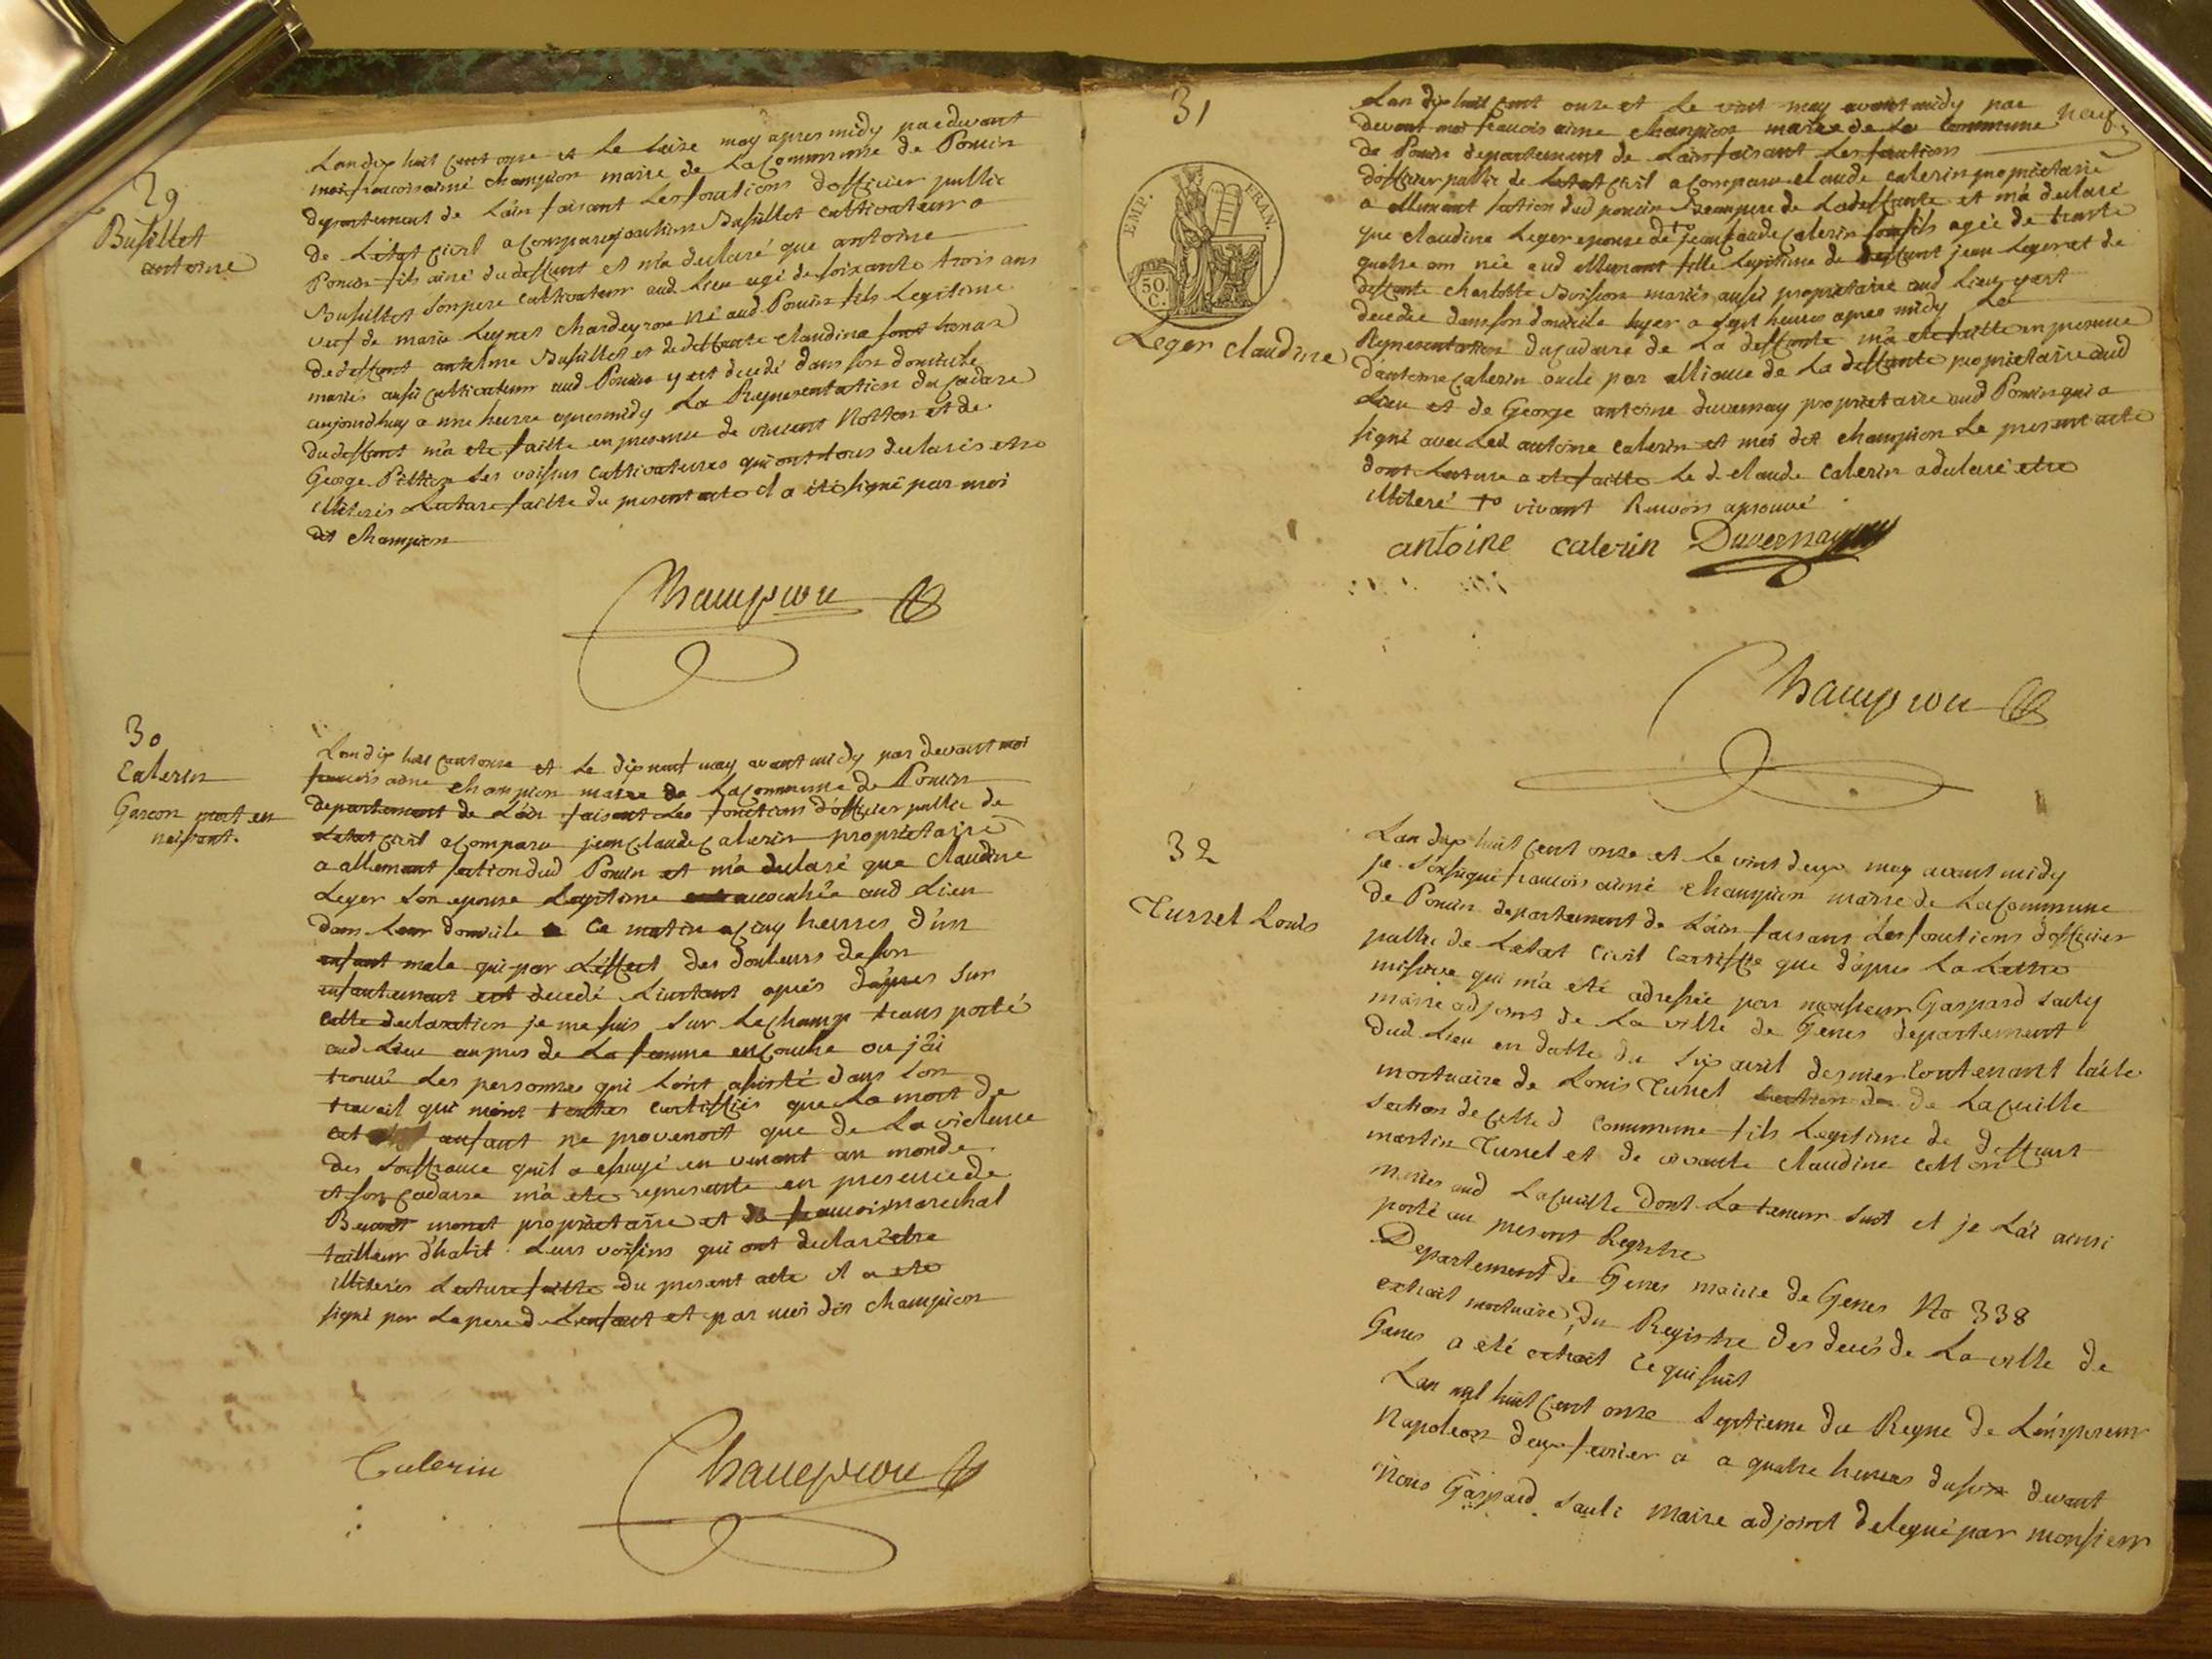 29
Busillet
antoine
Lan dix huit cent onze et le seise may apres midy pardevant
moi francois aimé champion maire de la Commune de Poncin
departement de Lain faisant les fonctions dofficier public
de Létat civil a comparu joachim Busillet cultivateur a
Poncin fils ainé du deffunt et m'a declaré que antoine
Busillet son pere cultivateur aud Lieu agé de soixante trois ans
veuf de marie Leynet chardeyron né aud Poncin fils Legitime
de deffunt antelme Busillet et de deffunte claudine
mariés aussi cultivateurs aud Poncin y est decedé dans son domicile
aujourdhuy a une heure apres midy La Representation du cadavre
du deffunt m'a ete faitte en presence de vincent Notton et de
George Pittion Les voisins cultivateurs qui ont tous declarés etre
illiterés Lecture faitte du present acte il a été signé par moi
dit champion
Champion
30
Calerin
Garcon mort en
naissant.
Lan dix huit cent onze et le dix neuf may avant midy par devant moi
francois aimé champion maire de La commune de Poncin
departement de Lain faisant les fonctions d'officier public de
Letat civil a comparu jean claude calerin proprietaire
a allement section dud Poncin et m'a declaré que claudine
Leger son epouse Legitime accouchée aud Lieu
dans Leur domicile a Ce matin a cinq heures d'un
enfant male qui par L'effect des douleurs de son
enfantement est decedé L'instant après d'apres sur
cette declaration je me suis sur Le champ transporté
aud Lieu aupres de La femme en couche ou j'ai
trouvé des personnes qui Lont assisté dans son
travail qui m'ont toutes certiffiés que La mort de
cet enfant ne provenoit que de La violence
des souffrance quil a essuyé en venant au monde
et son cadavre m'a ete representé en presence de
Benoit monet proprietaire et de francois marechal
tailleur d'habit Leurs voisins qui ont declaré etre
illiterés Lecture faitte du present acte il a ete
signé par Le pere de Lenfant et par moi dit champion
Calerin Champion
31
neuf
EMP. FRAN.
50.
C.
Leger claudine
Lan dix huit cent onze et le vint may avant midy par
devant moi francois aimé champion maire de La commune
de Poncin departement de Lain faisant Les fonctions
dofficier public de Letat civil a comparu claude calerin proprietaire
a allement section dud poncin Beaupere de La deffunte et m'a declaré
que claudine Leger epouse de jean claude calerin son fils agée de trante
quatre ans née aud allement fille Legitime de deffunt jean Leger et de
deffunte charlotte Buisson mariés aussi proprietaire aud Lieu y est
decedée dans son domicile hyer a sept heures apres midy La
Representation du cadavre de La deffunte m'a ete faitte en presence
d'antoine calerin oncle par alliance de La deffunte proprietaire aud
Lieu et de George antoine duvernay proprietaire aud Poncin qui a
signé avec Led antoine calerin et moi dit champion Le present acte
dont Lecture a ete faitte Le d. claude calerin a declaré etre
illiteré vivant Renvois aprouvé
antoine calerin Duvernay
Champion
32
Turrel Louis
Lan dix huit cent onze et Le vint deux may avant midy
je soussigné francois aimé champion maire de La commune
de Poncin departement de Lain faisant Les fonctions d'officier
public de Letat civil Certiffie que d'apres La Lettre
missive qui m'a eté adressée par monsieur Gaspard Sauly
maire adjoint de La ville de Gênes departement
dud Lieu en datte du six avril dernier Contenant L'acte
mortuaire de Louis Turrel de La cueille
section de cette d commune fils Legitime de deffunt
martin Turrel et de vivante claudine Cotton
mariés aud La cueille dont La teneur suit et je L'ai ainsi
porté au present Registre
Departement de Genes mairie de Genes No 338
extrait mortuaire, du Registre des decés de La ville de
Genes a eté extrait ce qui suit
Lan mil huit cent onze Septieme du Regne de Lempereur
Napoleon deux fevrier a a quatre heures du soir devant
Nous Gaspard Sauli Maire adjoint delegué par monsieur